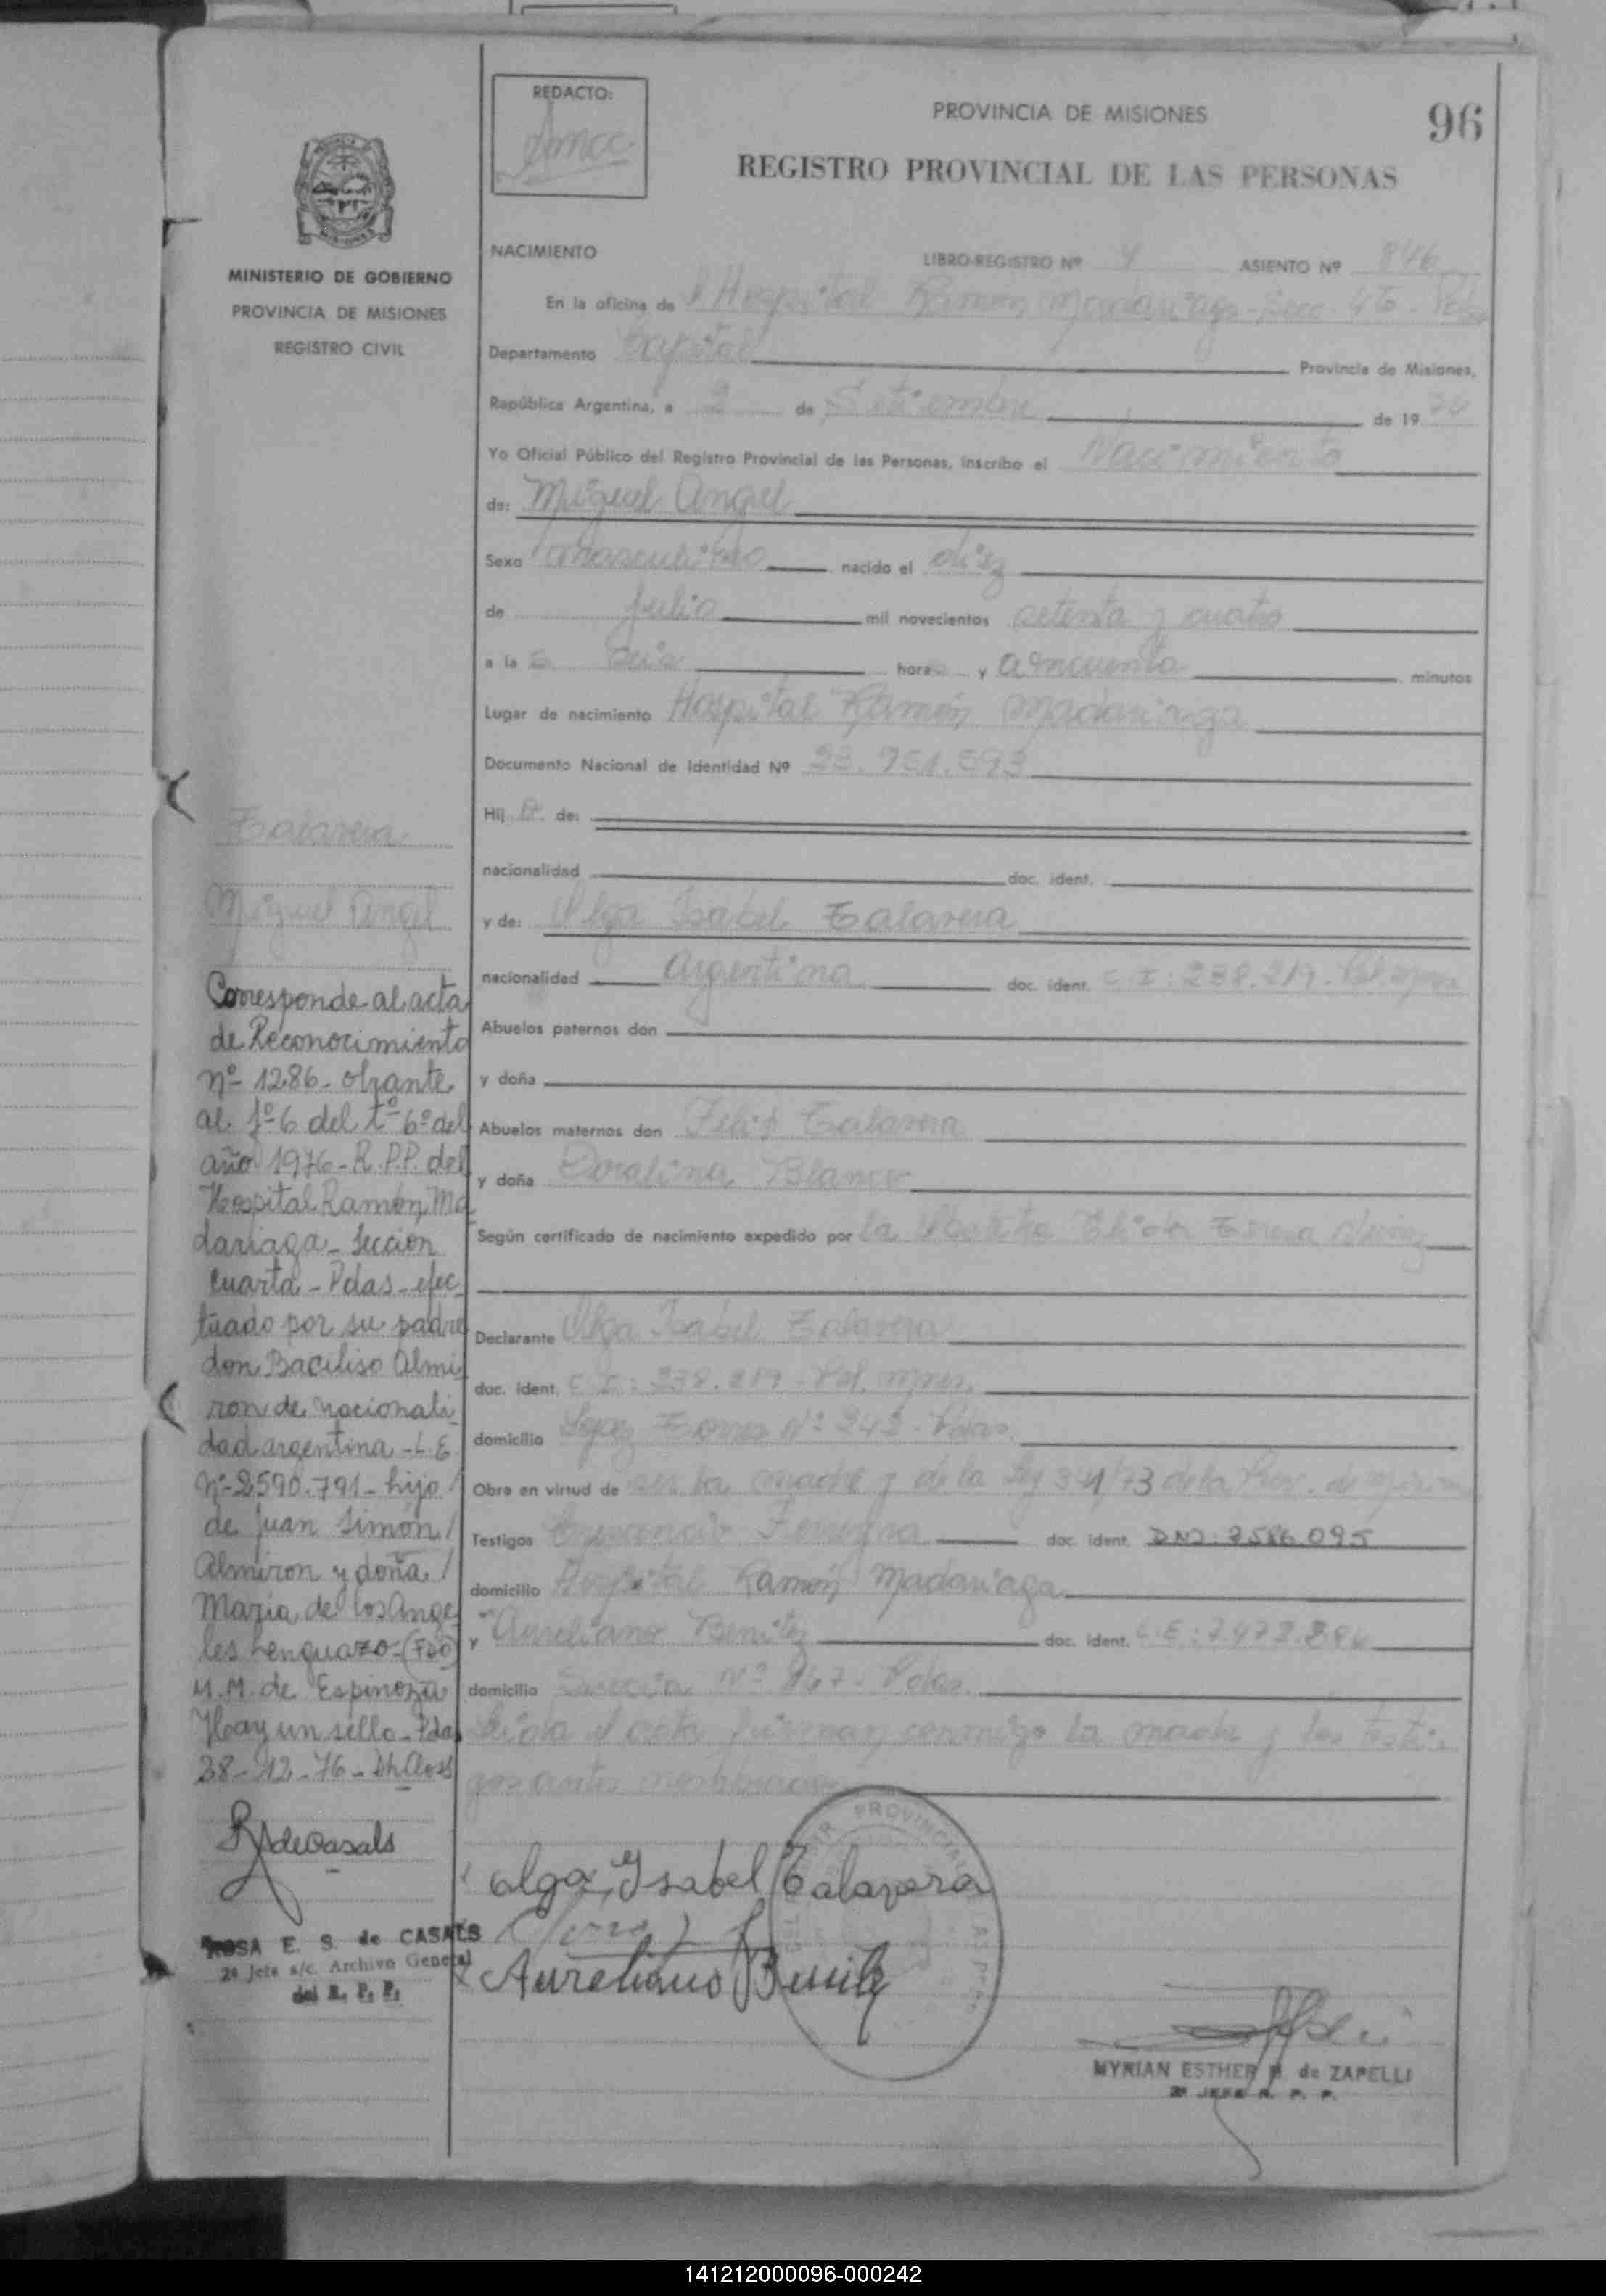 REDACTO:
PROVINCIA DE MISIONES
96
REGISTRO PROVINCIAL DE LAS PERSONAS
MINISTERIO DE GOBIERNO
PROVINCIA DE MISIONES
REGISTRO CIVIL
NACIMIENTO LIBRO-REGISTRO Nº 4 ASIENTO Nº 846
En la oficina de l Hospital Ramón Madariaga - Secc. 4ta - Pdas
Departamento Capital Provincia de Misiones,
República Argentina, a 2 de Setiembre de 19 74
Yo Oficial Público del Registro Provincial de las Personas, inscribo el Nacimiento
de: Miguel Angel
Sexo masculino nacido el diez
de julio mil novecientos setenta y cuatro
a la s seis hora s y cincuenta minutos
Lugar de nacimiento Hospital Ramón Madariaga
Documento Nacional de Identidad Nº 23.951.593
Hij o de:
nacionalidad doc. ident.
y de: Olga Isabel Talavera
nacionalidad argentina doc. ident. C.I: 238.219 - Pol.
Abuelos paternos don
y doña
Abuelos maternos don Talavera
y doña Doralina Blanco
Según certificado de nacimiento expedido por la
Declarante Olga Isabel Talavera
doc. ident. C.I: 238.219 - Pol. Mnes.
domicilio Lopez Torres Nº 242 - Pdas.
Obra en virtud de ser la madre y de la Ley 341/73 de la Prov. de
Testigos Crescencio Ferreyra doc. ident. DNI: 7586.095
domicilio Hospital Ramón Madariaga
y Aureliano Benitez doc. ident. L.E: 7.472.386
domicilio Suecia Nº 867 - Pdas.
Leida el acta firman conmigo la madre y los testi-
gos antes
Talavera
Miguel Angel
Corresponde al acta
de Reconocimiento
nº 1286 - obrante
al fº 6 del tº 6º del
año 1976 - R.P.P. del
Hospital Ramón Ma
dariaga - Sección
Cuarta - Pdas - efec
tuado por su padre
don Baciliso Almi
ron de nacionali
dad argentina - L.E
Nº 2590.791 - hijo
de Juan Simon
Almiron y doña
Maria de los Ange
les Lenguazo - (FDO)
M.M. de Espinoza
Hay un sello - Pdas
28-12-76 -
RS de Casals
ROSA E. S. de CASALS
2º Jefe s/c. Archivo General
del R. P. P.
Olga Ysabel Talavera
Aureliano Benitez
MYRIAN ESTHER de ZAPELLI
2º JEFE R. P. P.
141212000096-000242